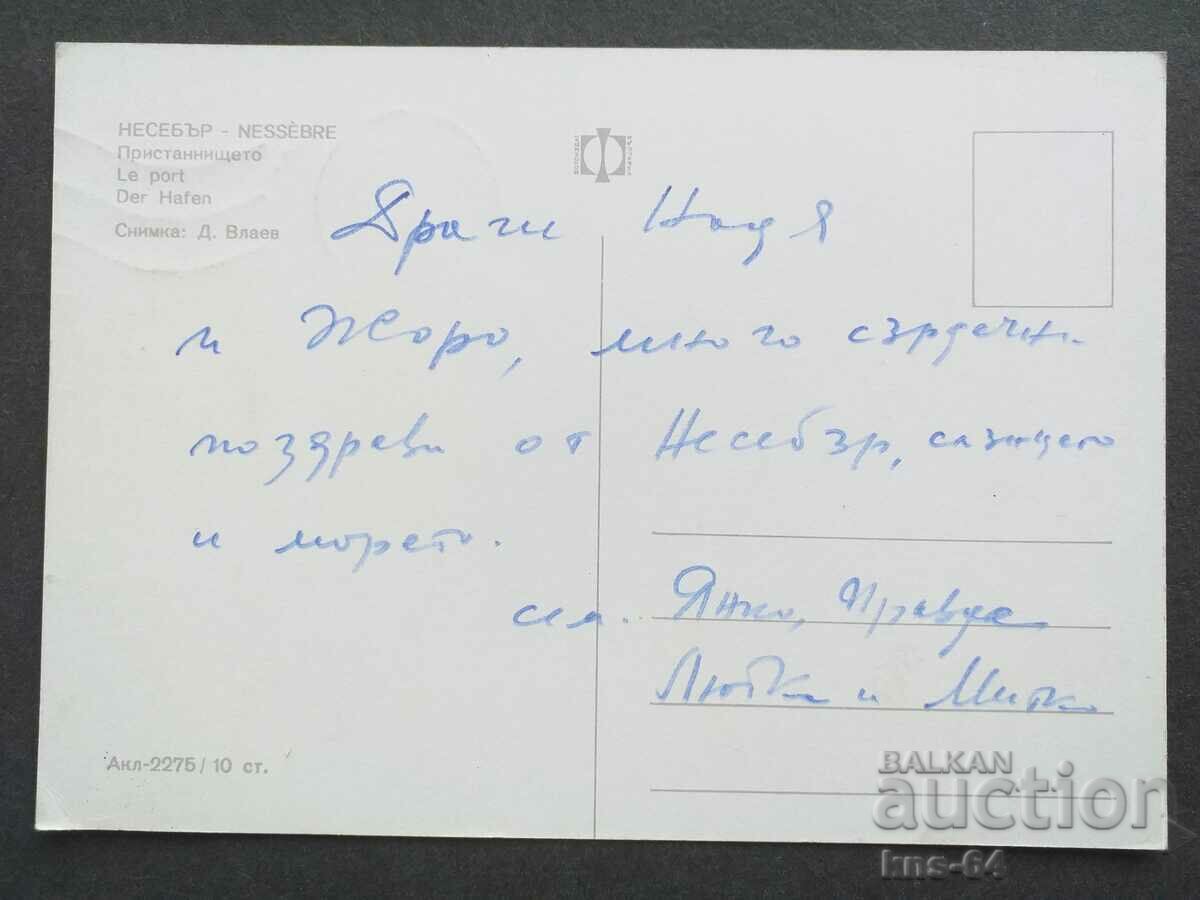 НЕСЕБЪР - NESSÈBRE
Пристаннището
Le port
Der Hafen
Снимка: Д. Влаев
Драги Надя
и Жоро, много сърдечни
поздрави от Несебър, слънцето
и морето.
сем. Янко, Правда
Любка и Митко
Акл-2275/10 ст.
BALKAN
auction
kns-64